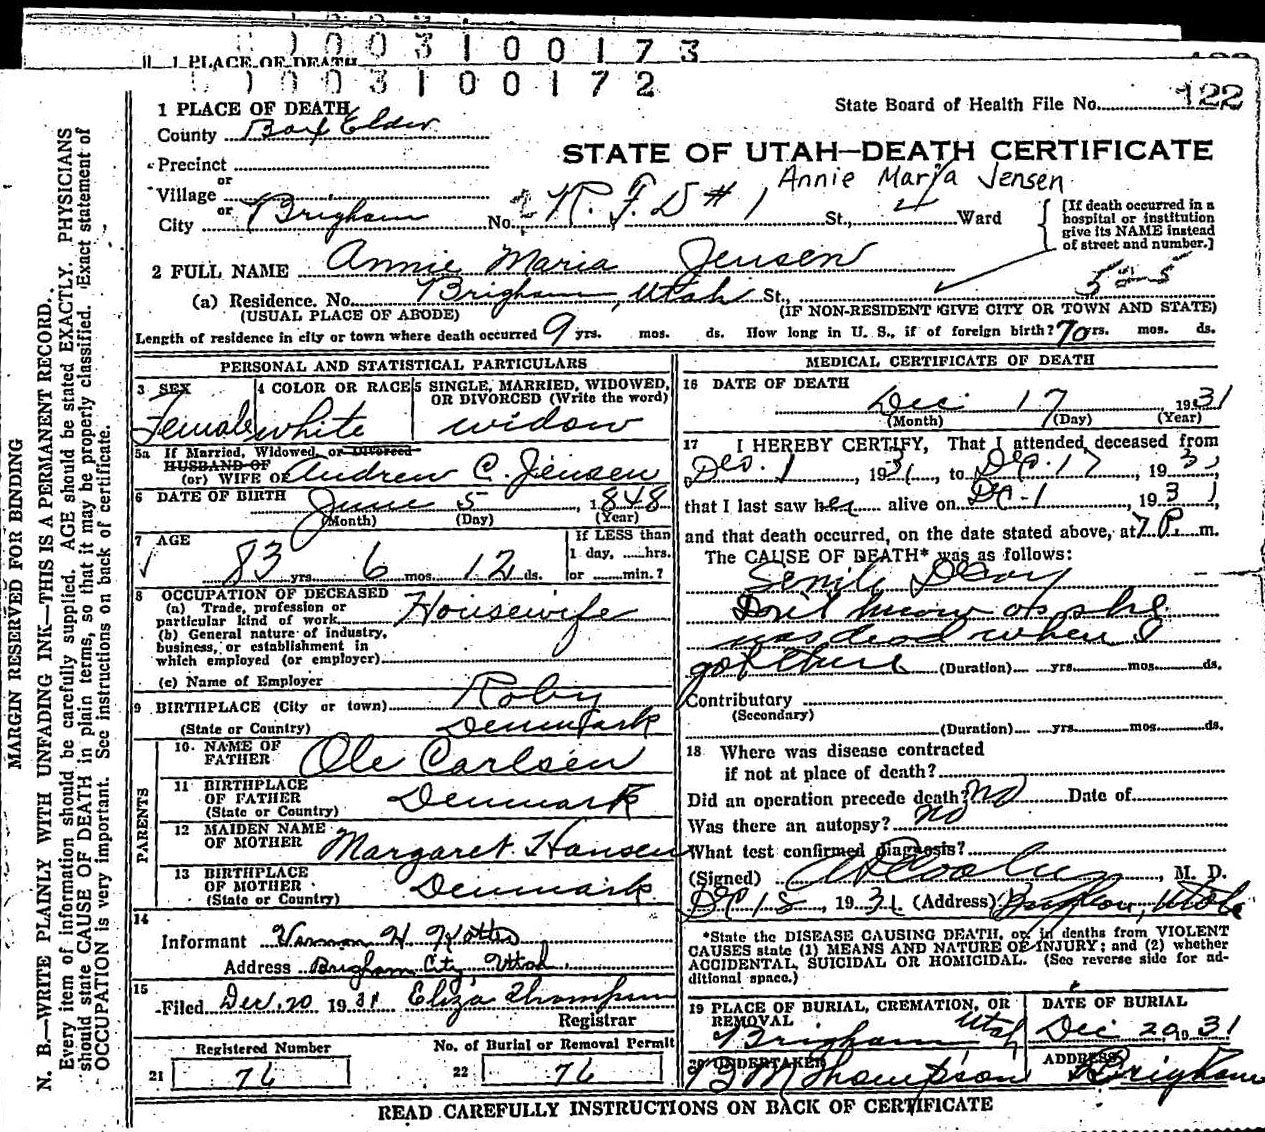 1003100173
1 PLACE OF DEATH
1003100172
1 PLACE OF DEATH
County Box Elder
State Board of Health File No. 122
Precinct
or
Village
or
City Brigham No. R. F. D # 1 St., 4 Ward
STATE OF UTAH—DEATH CERTIFICATE
Annie Maria Jensen
[If death occurred in a
hospital or institution
give its NAME instead
of street and number.]
2 FULL NAME Annie Maria Jensen
525
(a) Residence. No. Brigham, Utah St.,
(USUAL PLACE OF ABODE) (IF NON-RESIDENT GIVE CITY OR TOWN AND STATE)
Length of residence in city or town where death occurred 9 yrs. mos. ds. How long in U. S., if of foreign birth? 70 yrs. mos. ds.
PERSONAL AND STATISTICAL PARTICULARS
3 SEX
Female
4 COLOR OR RACE
white
5 SINGLE, MARRIED, WIDOWED,
OR DIVORCED (Write the word)
widow
5a If Married, Widowed, or Divorced
HUSBAND OF
(or) WIFE OF Andrew C. Jensen
6 DATE OF BIRTH June 5, 1848
(Month) (Day) (Year)
7 AGE
83 yrs. 6 mos. 12 ds.
If LESS than
1 day, ......hrs.
or ......min.?
8 OCCUPATION OF DECEASED
(a) Trade, profession or
particular kind of work Housewife
(b) General nature of industry,
business, or establishment in
which employed (or employer)
(c) Name of Employer
9 BIRTHPLACE (City or town) Roby
(State or Country) Denmark
PARENTS
10 NAME OF
FATHER Ole Carlsen
11 BIRTHPLACE
OF FATHER Denmark
(State or Country)
12 MAIDEN NAME
OF MOTHER Margaret Hansen
13 BIRTHPLACE
OF MOTHER Denmark
(State or Country)
14
Informant Vernon H
Address Brigham City, Utah
15
Filed Dec. 20 1931 Eliza Thompson
Registrar
Registered Number
21 76
No. of Burial or Removal Permit
22 76
MEDICAL CERTIFICATE OF DEATH
16 DATE OF DEATH
Dec 17 1931
(Month) (Day) (Year)
17 I HEREBY CERTIFY, That I attended deceased from
Dec. 1, 1931, to Dec. 17, 1931
that I last saw her alive on Dec-1, 1931
and that death occurred, on the date stated above, at 7 P. m.
The CAUSE OF DEATH* was as follows:
Senile Decay
Don't know as she
was dead when I
got there (Duration) yrs. mos. ds.
Contributory
(Secondary)
(Duration) yrs. mos. ds.
18 Where was disease contracted
if not at place of death?
Did an operation precede death? no Date of
Was there an autopsy? no
What test confirmed diagnosis?
(Signed) , M. D.
Dec 18, 1931 (Address) Brigham, Utah
*State the DISEASE CAUSING DEATH, or, in deaths from VIOLENT
CAUSES state (1) MEANS AND NATURE OF INJURY; and (2) whether
ACCIDENTAL, SUICIDAL OR HOMICIDAL. (See reverse side for ad-
ditional space.)
19 PLACE OF BURIAL, CREMATION, OR
REMOVAL
Brigham Utah
DATE OF BURIAL
Dec 20 1931
20 UNDERTAKER
B M Thompson
ADDRESS
Brigham
READ CAREFULLY INSTRUCTIONS ON BACK OF CERTIFICATE
MARGIN RESERVED FOR BINDING
N. B.—WRITE PLAINLY WITH UNFADING INK—THIS IS A PERMANENT RECORD.
Every item of information should be carefully supplied. AGE should be stated EXACTLY. PHYSICIANS
should state CAUSE OF DEATH in plain terms, so that it may be properly classified. Exact statement of
OCCUPATION is very important. See instructions on back of certificate.